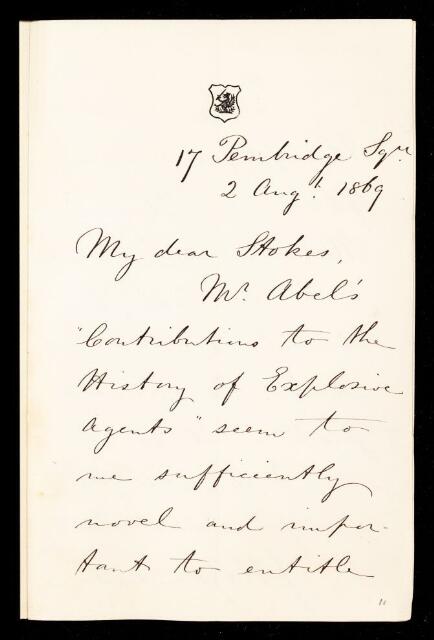 17 Pembridge Sqre
2 Augt. 1869
My dear Stokes,
Mr. Abel's
"Contributions to the
History of Explosive
Agents" seem to
me sufficiently
novel and impor-
tant to entitle